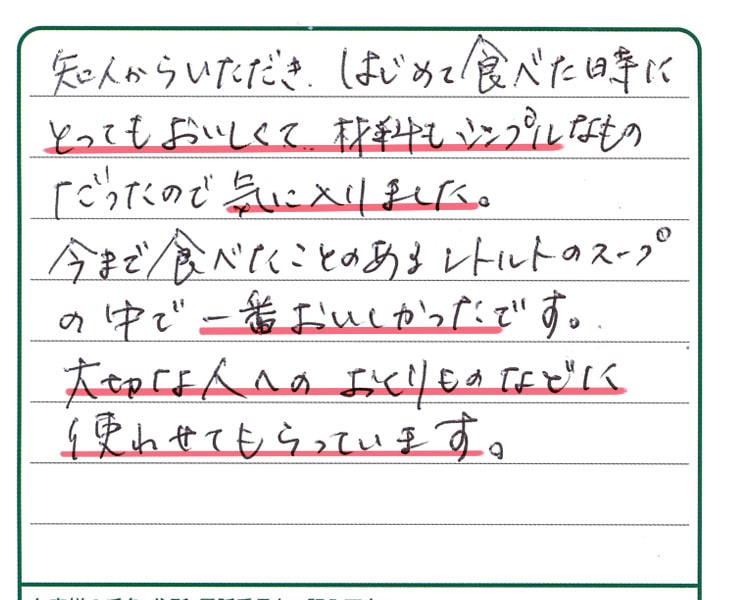 知人からいただき、はじめて食べた時に
とってもおいしくて、材料もシンプルなもの
だったので気に入りました。
今まで食べたことのあるレトルトのスープ
の中で一番おいしかったです。
大切な人へのおくりものなどに
使わせてもらっています。